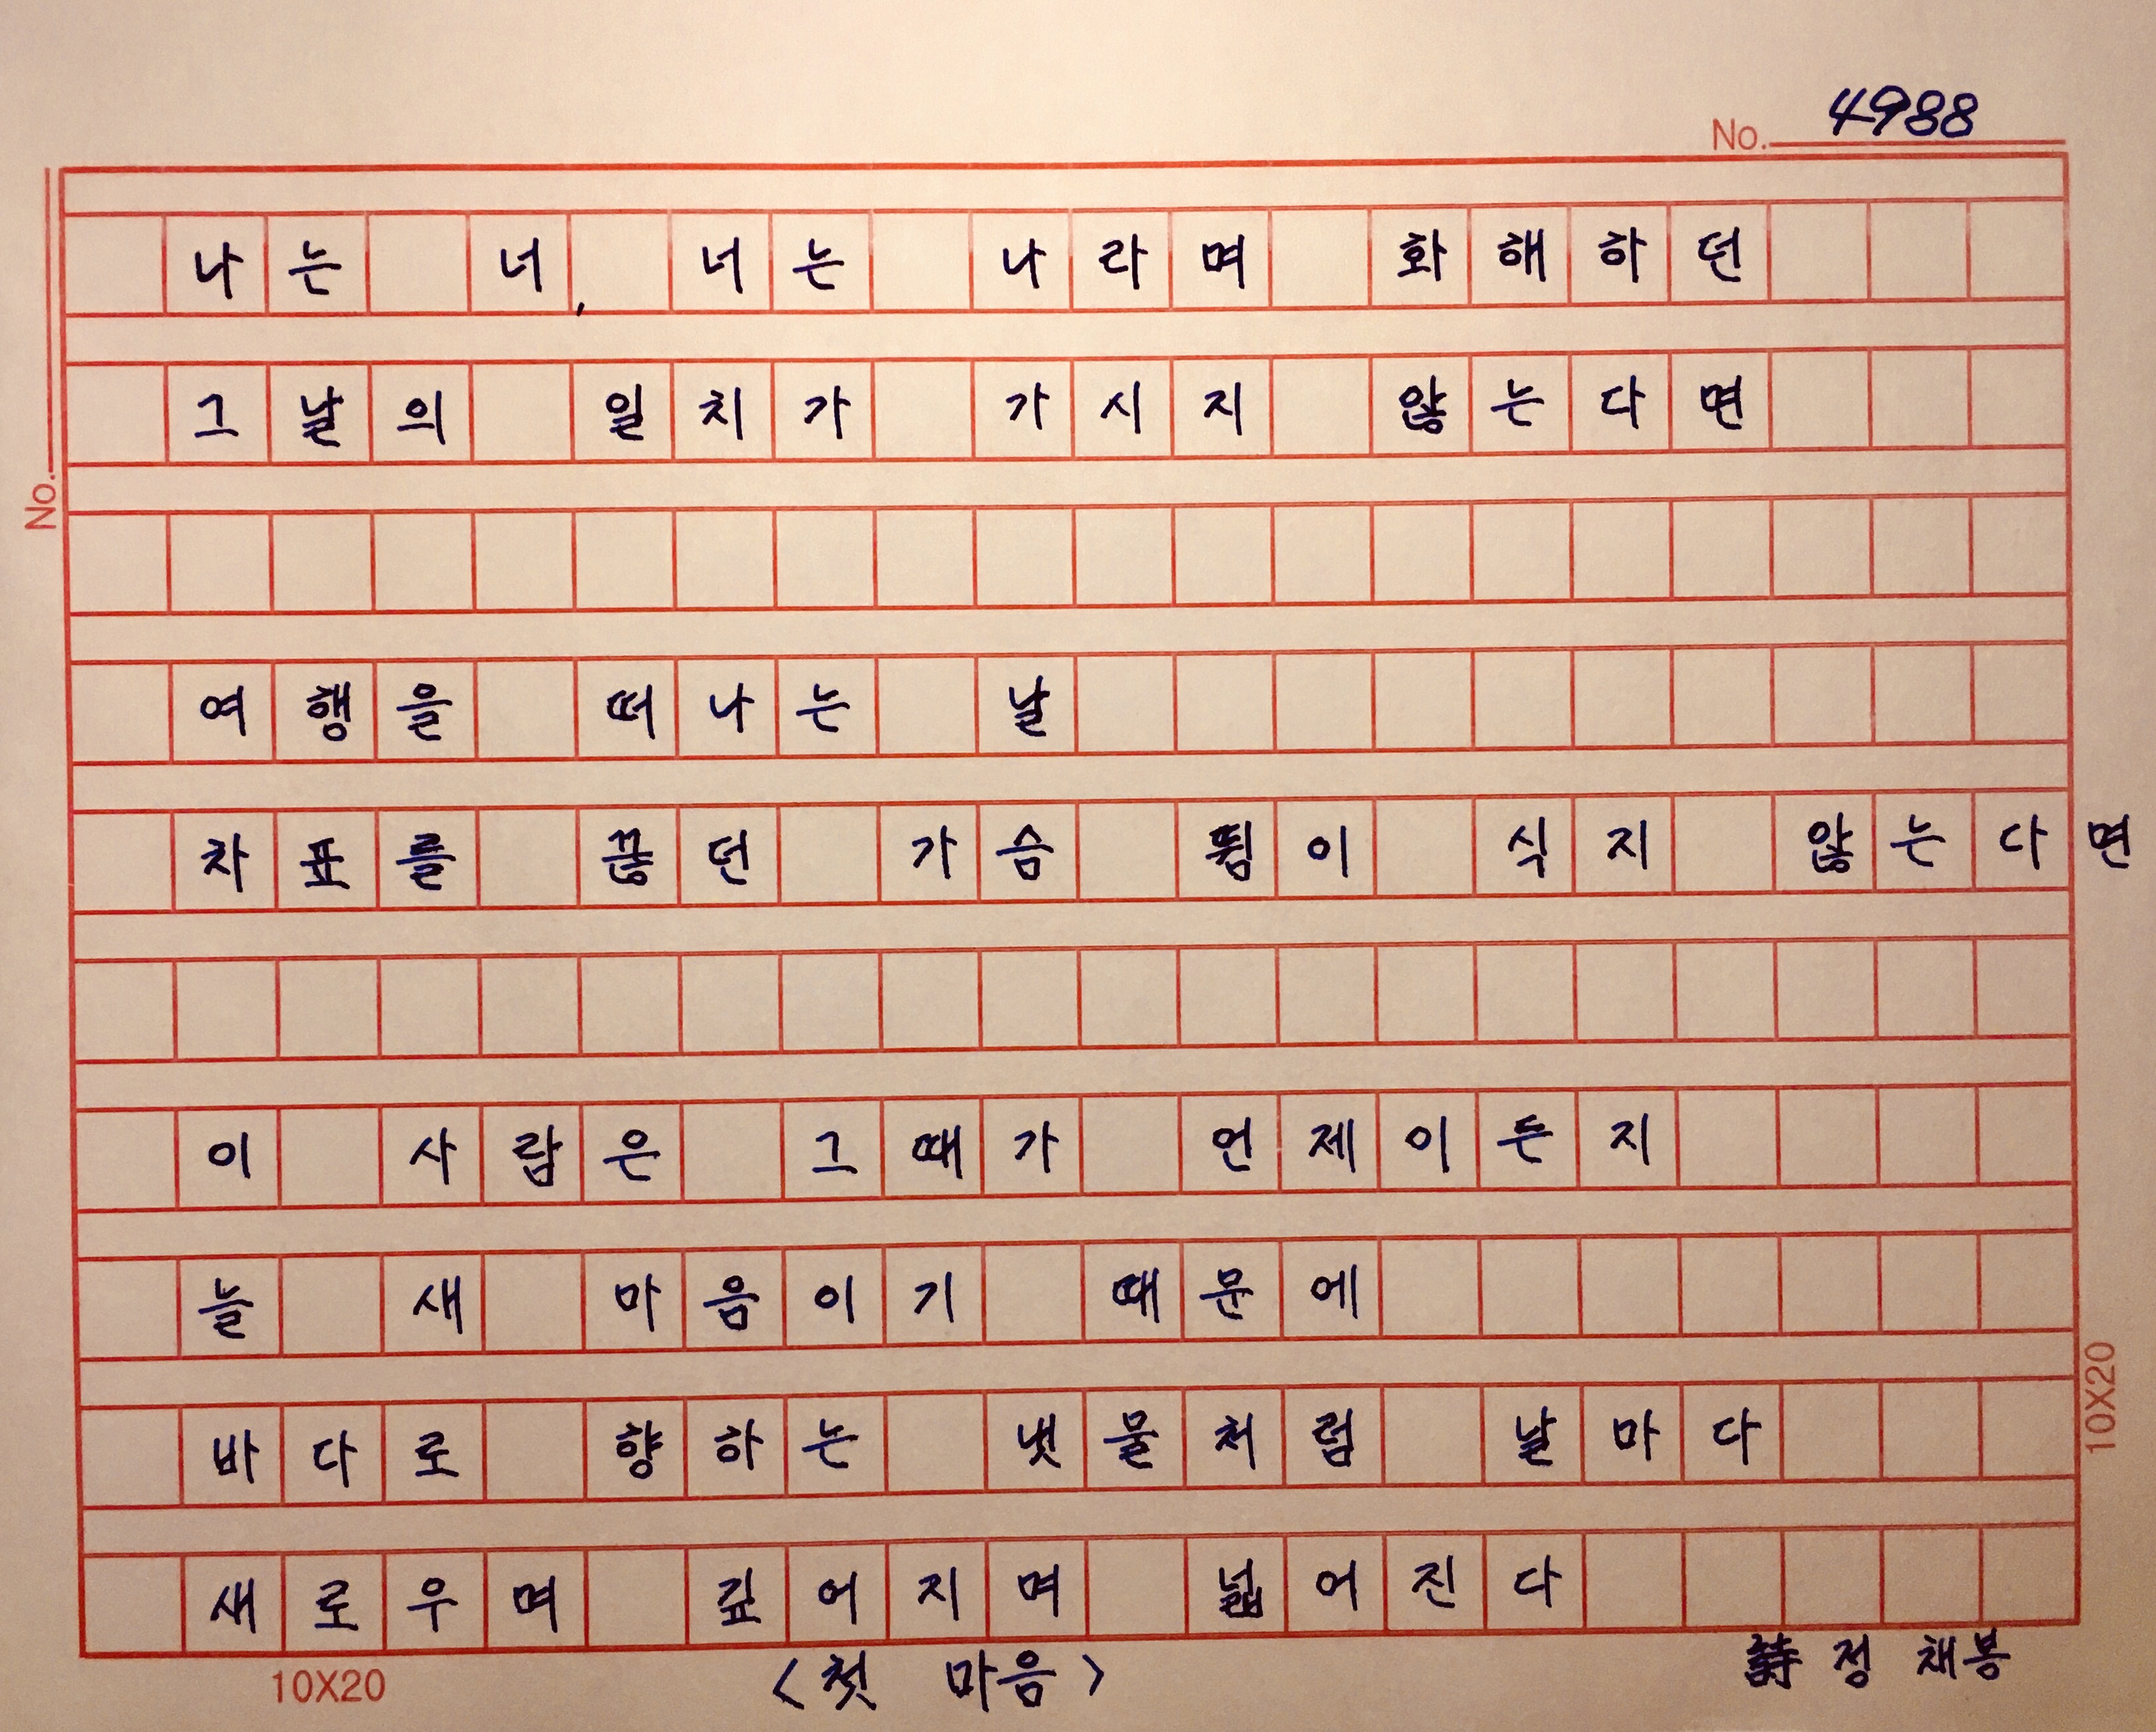 No. 4988
나는 너, 너는 나라며 화해하던
그날의 일치가 가시지 않는다면
No.
여행을 떠나는 날
차표를 끊던 가슴 뜀이 식지 않는다면
이 사람은 그때가 언제이든지
늘 새 마음이기 때문에
바다로 향하는 냇물처럼 날마다
10X20
새로우며 깊어지며 넓어진다
10X20 <첫 마음> 詩 정 채봉